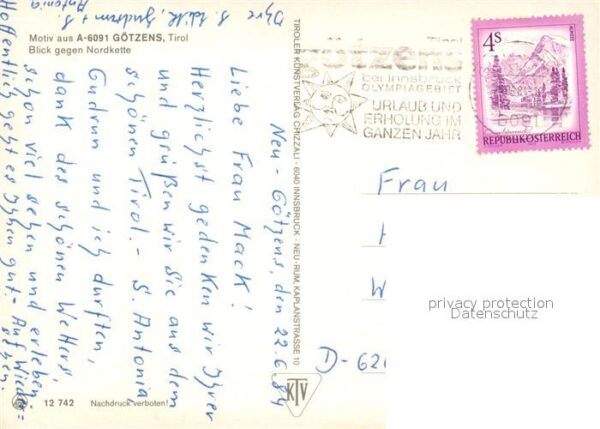 Motiv aus A-6091 GÖTZENS, Tirol
Blick gegen Nordkette
Neu-Götzens, den 22.6.84
Liebe Frau Mack!
Herzlichst gedenken wir Ihrer
und grüßen wir Sie aus dem
schönen Tirol. - S. Antonia,
Gudrun und ich durften,
dank des schönen Wetters,
schon viel sehen und erleben.
Hoffentlich geht es Ihnen gut. - Auf Wieder=
sehen.
Ihre S. Edith, Gudrun + S.
Antonia
TIROLER KUNSTVERLAG CHIZZALI · 6040 INNSBRUCK - NEU-RUM, KAPLANSTRASSE 10
KTV
12 742 Nachdruck verboten!
götzens
bei Innsbruck
OLYMPIAGEBIET
URLAUB UND
ERHOLUNG IM
GANZEN JAHR
6091
4 S
REPUBLIK ÖSTERREICH
Frau
W
D-62
privacy protection
Datenschutz